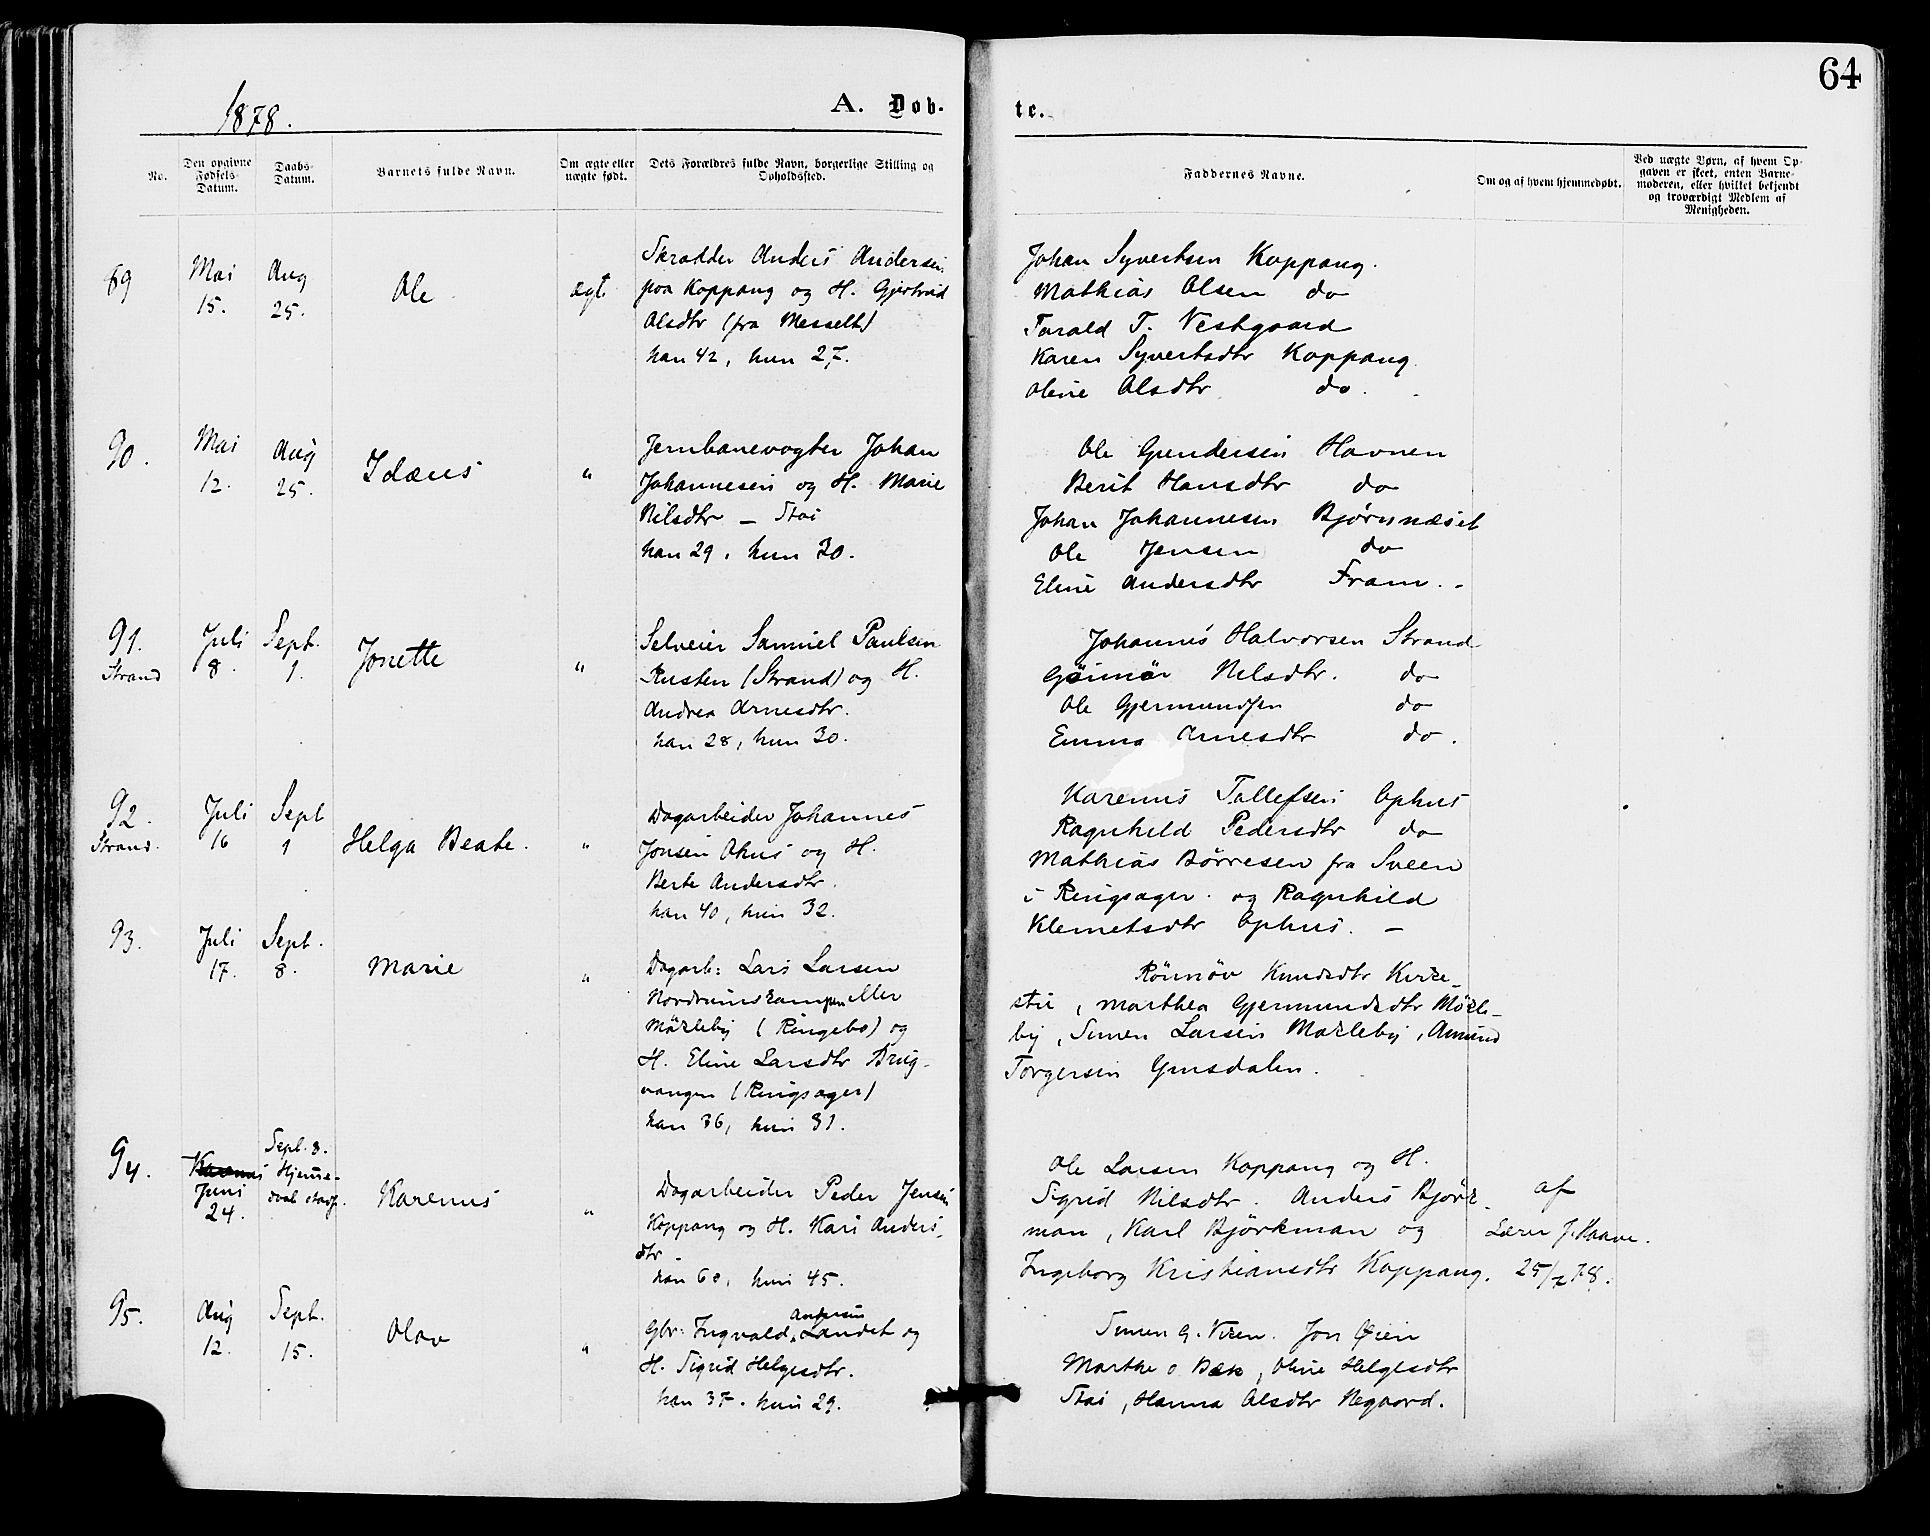 64
1878.
A. Døb-
te.
No.
Den opgivne Fødsels-Datum.
Daabs-Datum.
Barnets fulde Navn.
Om ægte eller uægte født.
Dets Forældres fulde Navn, borgerlige Stilling og Opholdssted.
Faddernes Navne.
Om og af hvem hjemmedøbt.
Ved uægte Børn, af hvem Op-
gaven er skeet, enten Barne-
moderen, eller hvilket bekjendt
og troværdigt Medlem af
Menigheden.
89
Mai 15.
Aug 25.
Ole
ægte
Skrædder Anders Andersen
paa Koppang og H. Gjertrud
Olsdtr (fra Messelt)
han 42, hun 27.
Johan Syvertsen Koppang.
Mathias Olsen do
Tarald T. Vestgaard
Karen Syvertsdtr Koppang
Oline Olsdtr do.
90.
Mai 12.
Aug 25.
Idæus
"
Jernbanevogter Johan
Johannesen og H. Marie
Nilsdtr – Stai
han 29, hun 30.
Ole Gundersen Havnen
Berit Hansdtr do
Johan Johannesen Bjørnnæset
Ole Jensen do
Eline Andersdtr Fram. -
91.
Strand
Juli 8.
Sept. 1.
Jonette
"
Selveier Samuel Paulsen
Rusten (Strand) og H.
Andrea Arnesdtr.
han 28, hun 30.
Johannes Halvorsen Strand
Gunnør Nilsdtr. do
Ole Gjermundsen do
Emma Arnesdtr do.
92.
Strand.
Juli 16
Sept 1
Helga Beate.
"
Dagarbeider Johannes
Jonsen Ophus og H.
Berte Andersdtr.
han 40, hun 32.
Karenus Tollefsen Ophus
Ragnhild Pedersdtr do
Mathias Børresen fra Sveen
i Ringsager. og Ragnhild
Klemetsdtr Ophus. –
93.
Juli 17.
Sept. 8.
Marie
"
Dagarb: Lars Larsen
Nordrumskampen eller
Mørkeby (Ringebo) og
H. Eline Larsdtr Brug-
vangen (Ringsager)
han 36, hun 31.
Rønnøv Knudsdtr Kirke-
stu, Marthea Gjermundsdtr Mørke-
by, Simen Larsen Mørkeby, Amund
Torgersen Imsdalen.
94.
Juni 24.
Sept. 8.
Hjemme-
daab stadf.
Karenus
"
Dagarbeider Peder Jensen
Koppang og H. Kari Anders-
dtr
han 60, hun 45.
Ole Larsen Koppang og H.
Sigrid Nilsdtr. Anders Björk-
man, Karl Björkman og
Ingeborg Kristiansdtr Koppang.
af
Lærer J. Haave.
25/7 78.
95.
Aug 12.
Sept. 15.
Olav
"
Gbr: Ingvald Andersen Landet og
H. Sigrid Helgesdtr.
han 37. hun 29.
Simen G. Viken. Jon Øien
Marthe O Bæk, Oline Helgesdtr
Stai, Hanna Olsdtr Negaard.